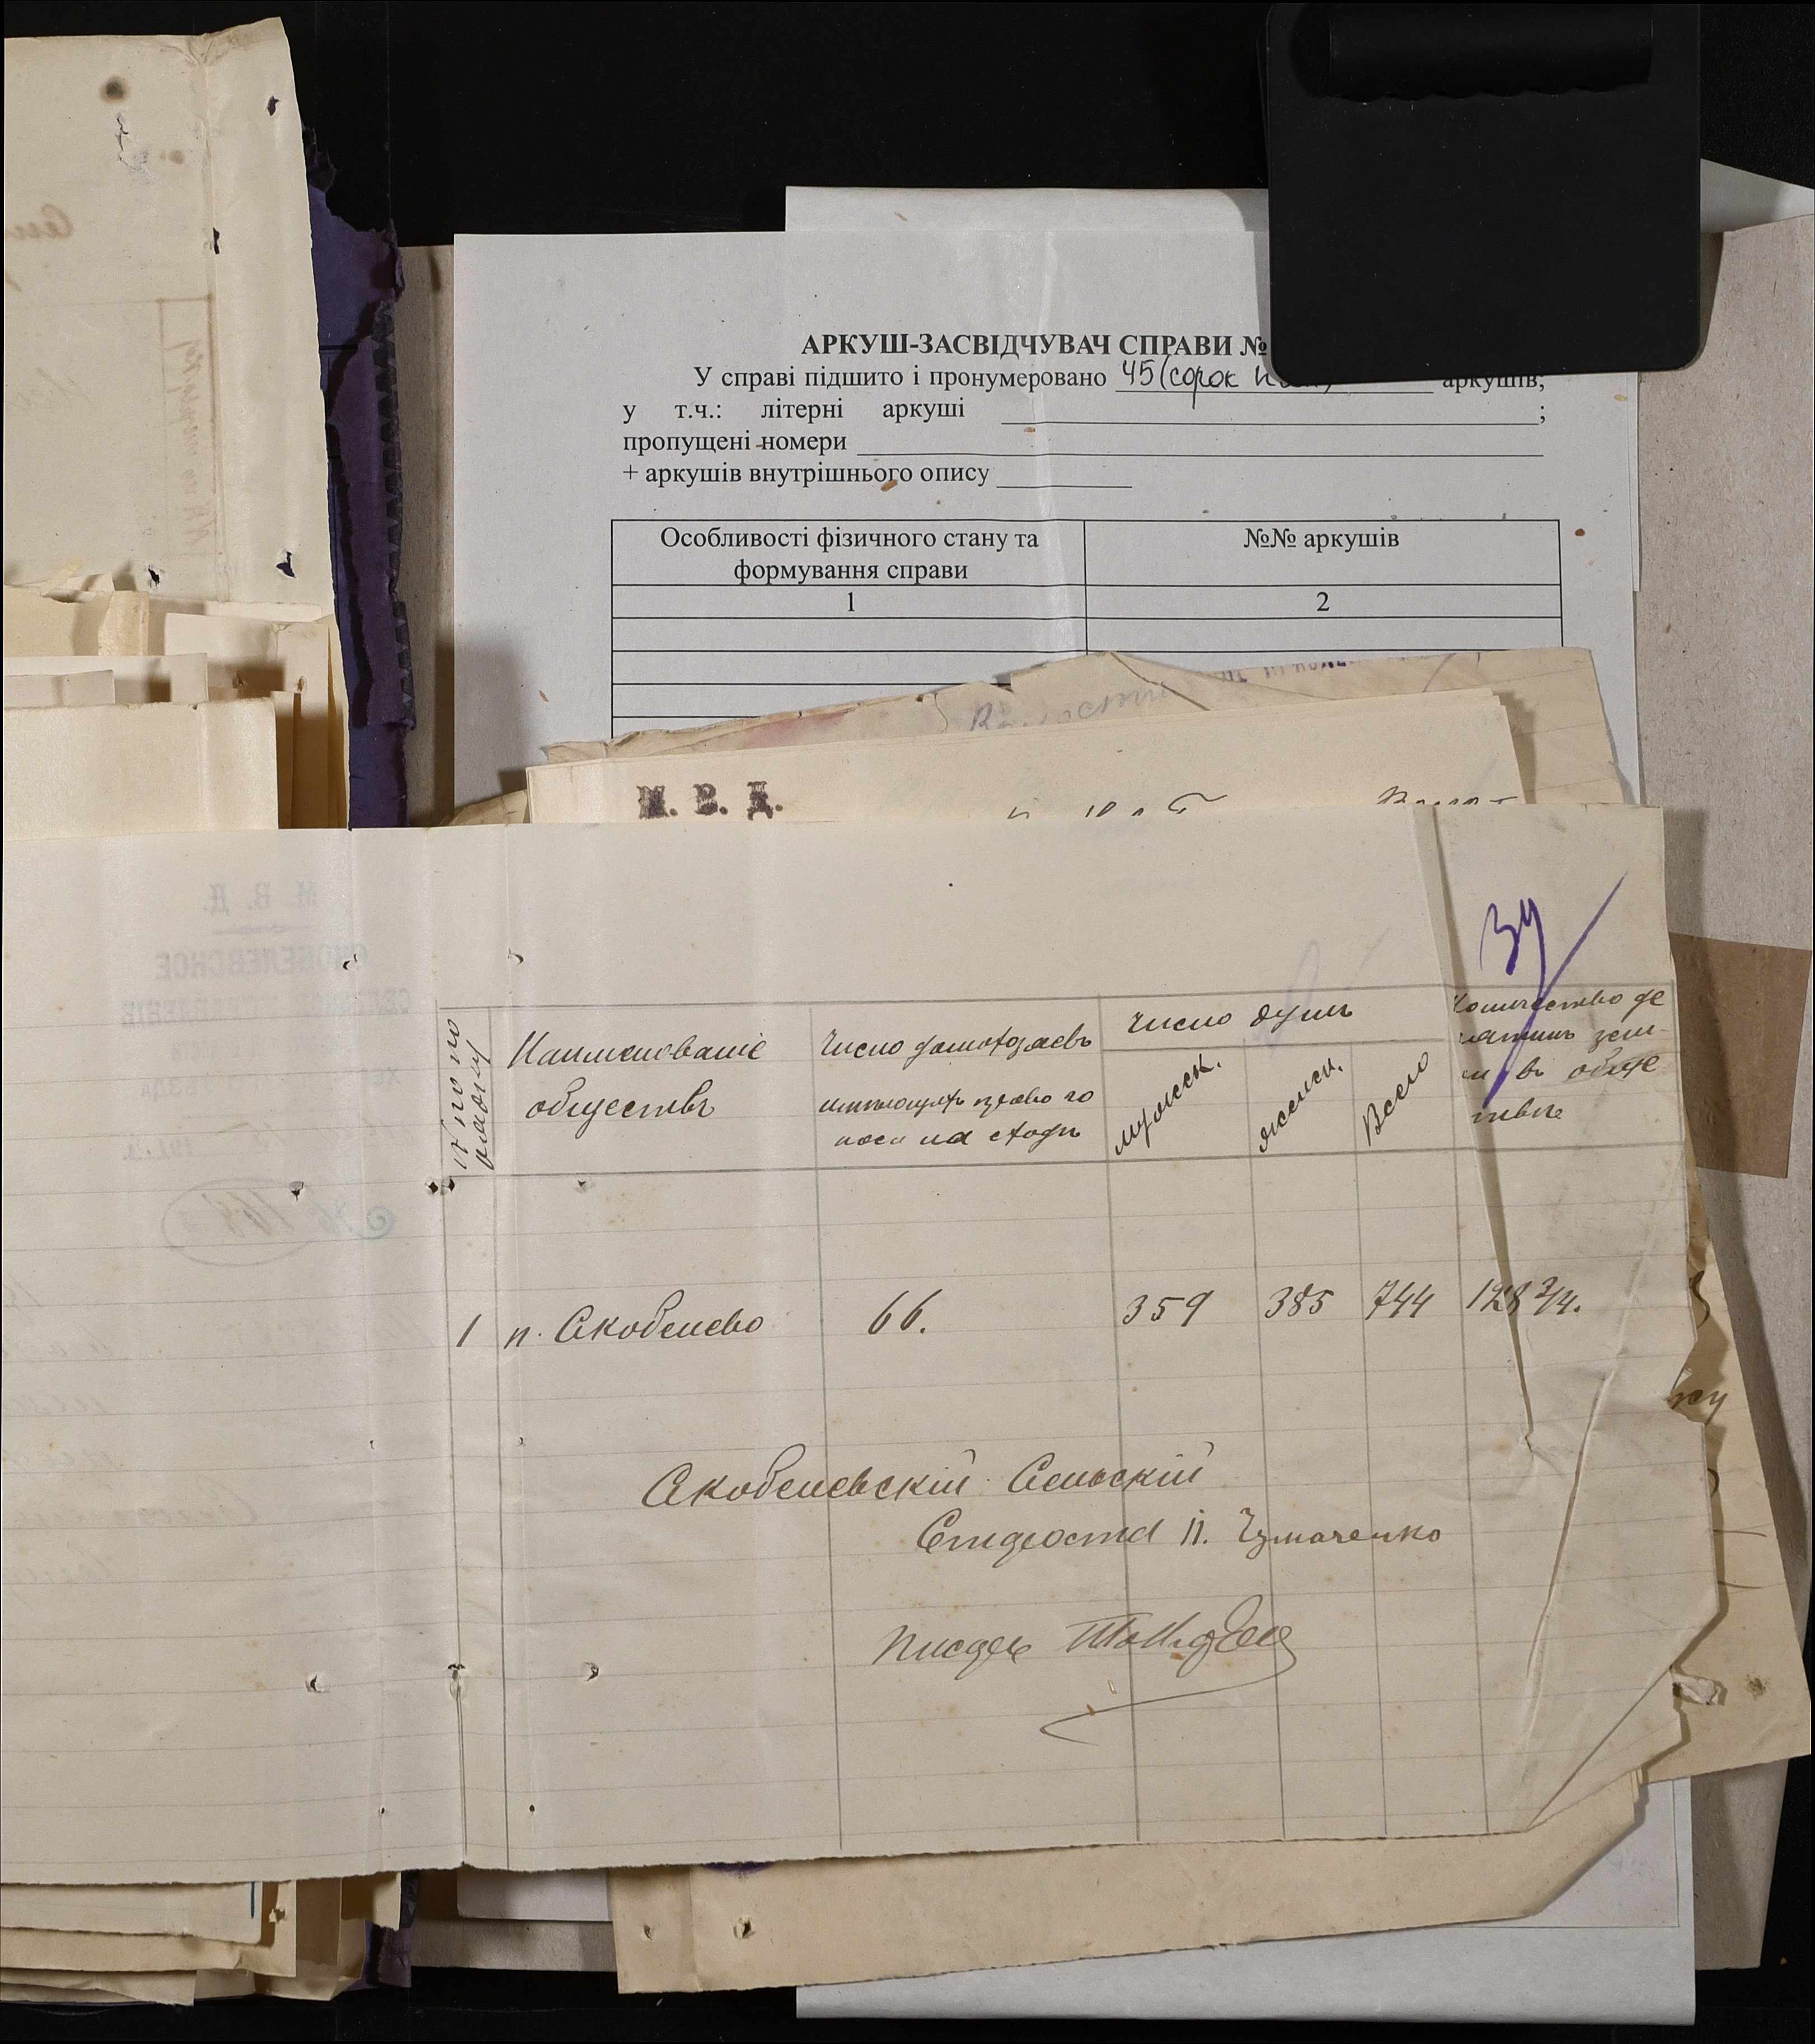 АРКУШ-ЗАСВІДЧУВАЧ СПРАВИ №
У справі підшито і пронумеровано 45 (сорок аркушів;
у т.ч.: літерні аркуші ;
пропущені номери
+ аркушів внутрішнього опису
Особливості фізичного стану та формування справи
№№ аркушів
1 2
М. В. Д.
М. В. Д.
СКОБЕЛЕВСКОЕ
39
№ по по
рядку
Наименованіе
обществъ
Число домохозяевъ
имѣющихъ право го
лоса на сходѣ
Число душъ
мужск.
женск.
Всего
Количество де
сятинъ зем-
ли въ обще
ствѣ
1 п. Скобелево 66. 359 385 744 128 3/4.
Скобелевскій Сельскій
Староста П. Чумаченко
Писарь